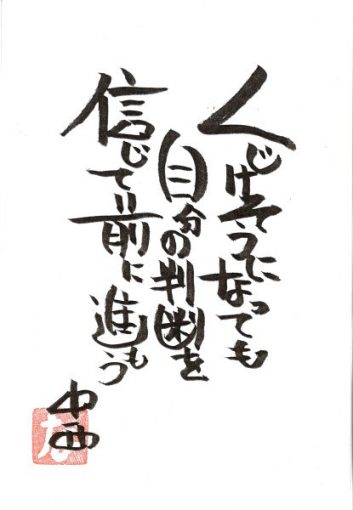 くじけそうになっても
自分の判断を
信じて前に進もう
中西